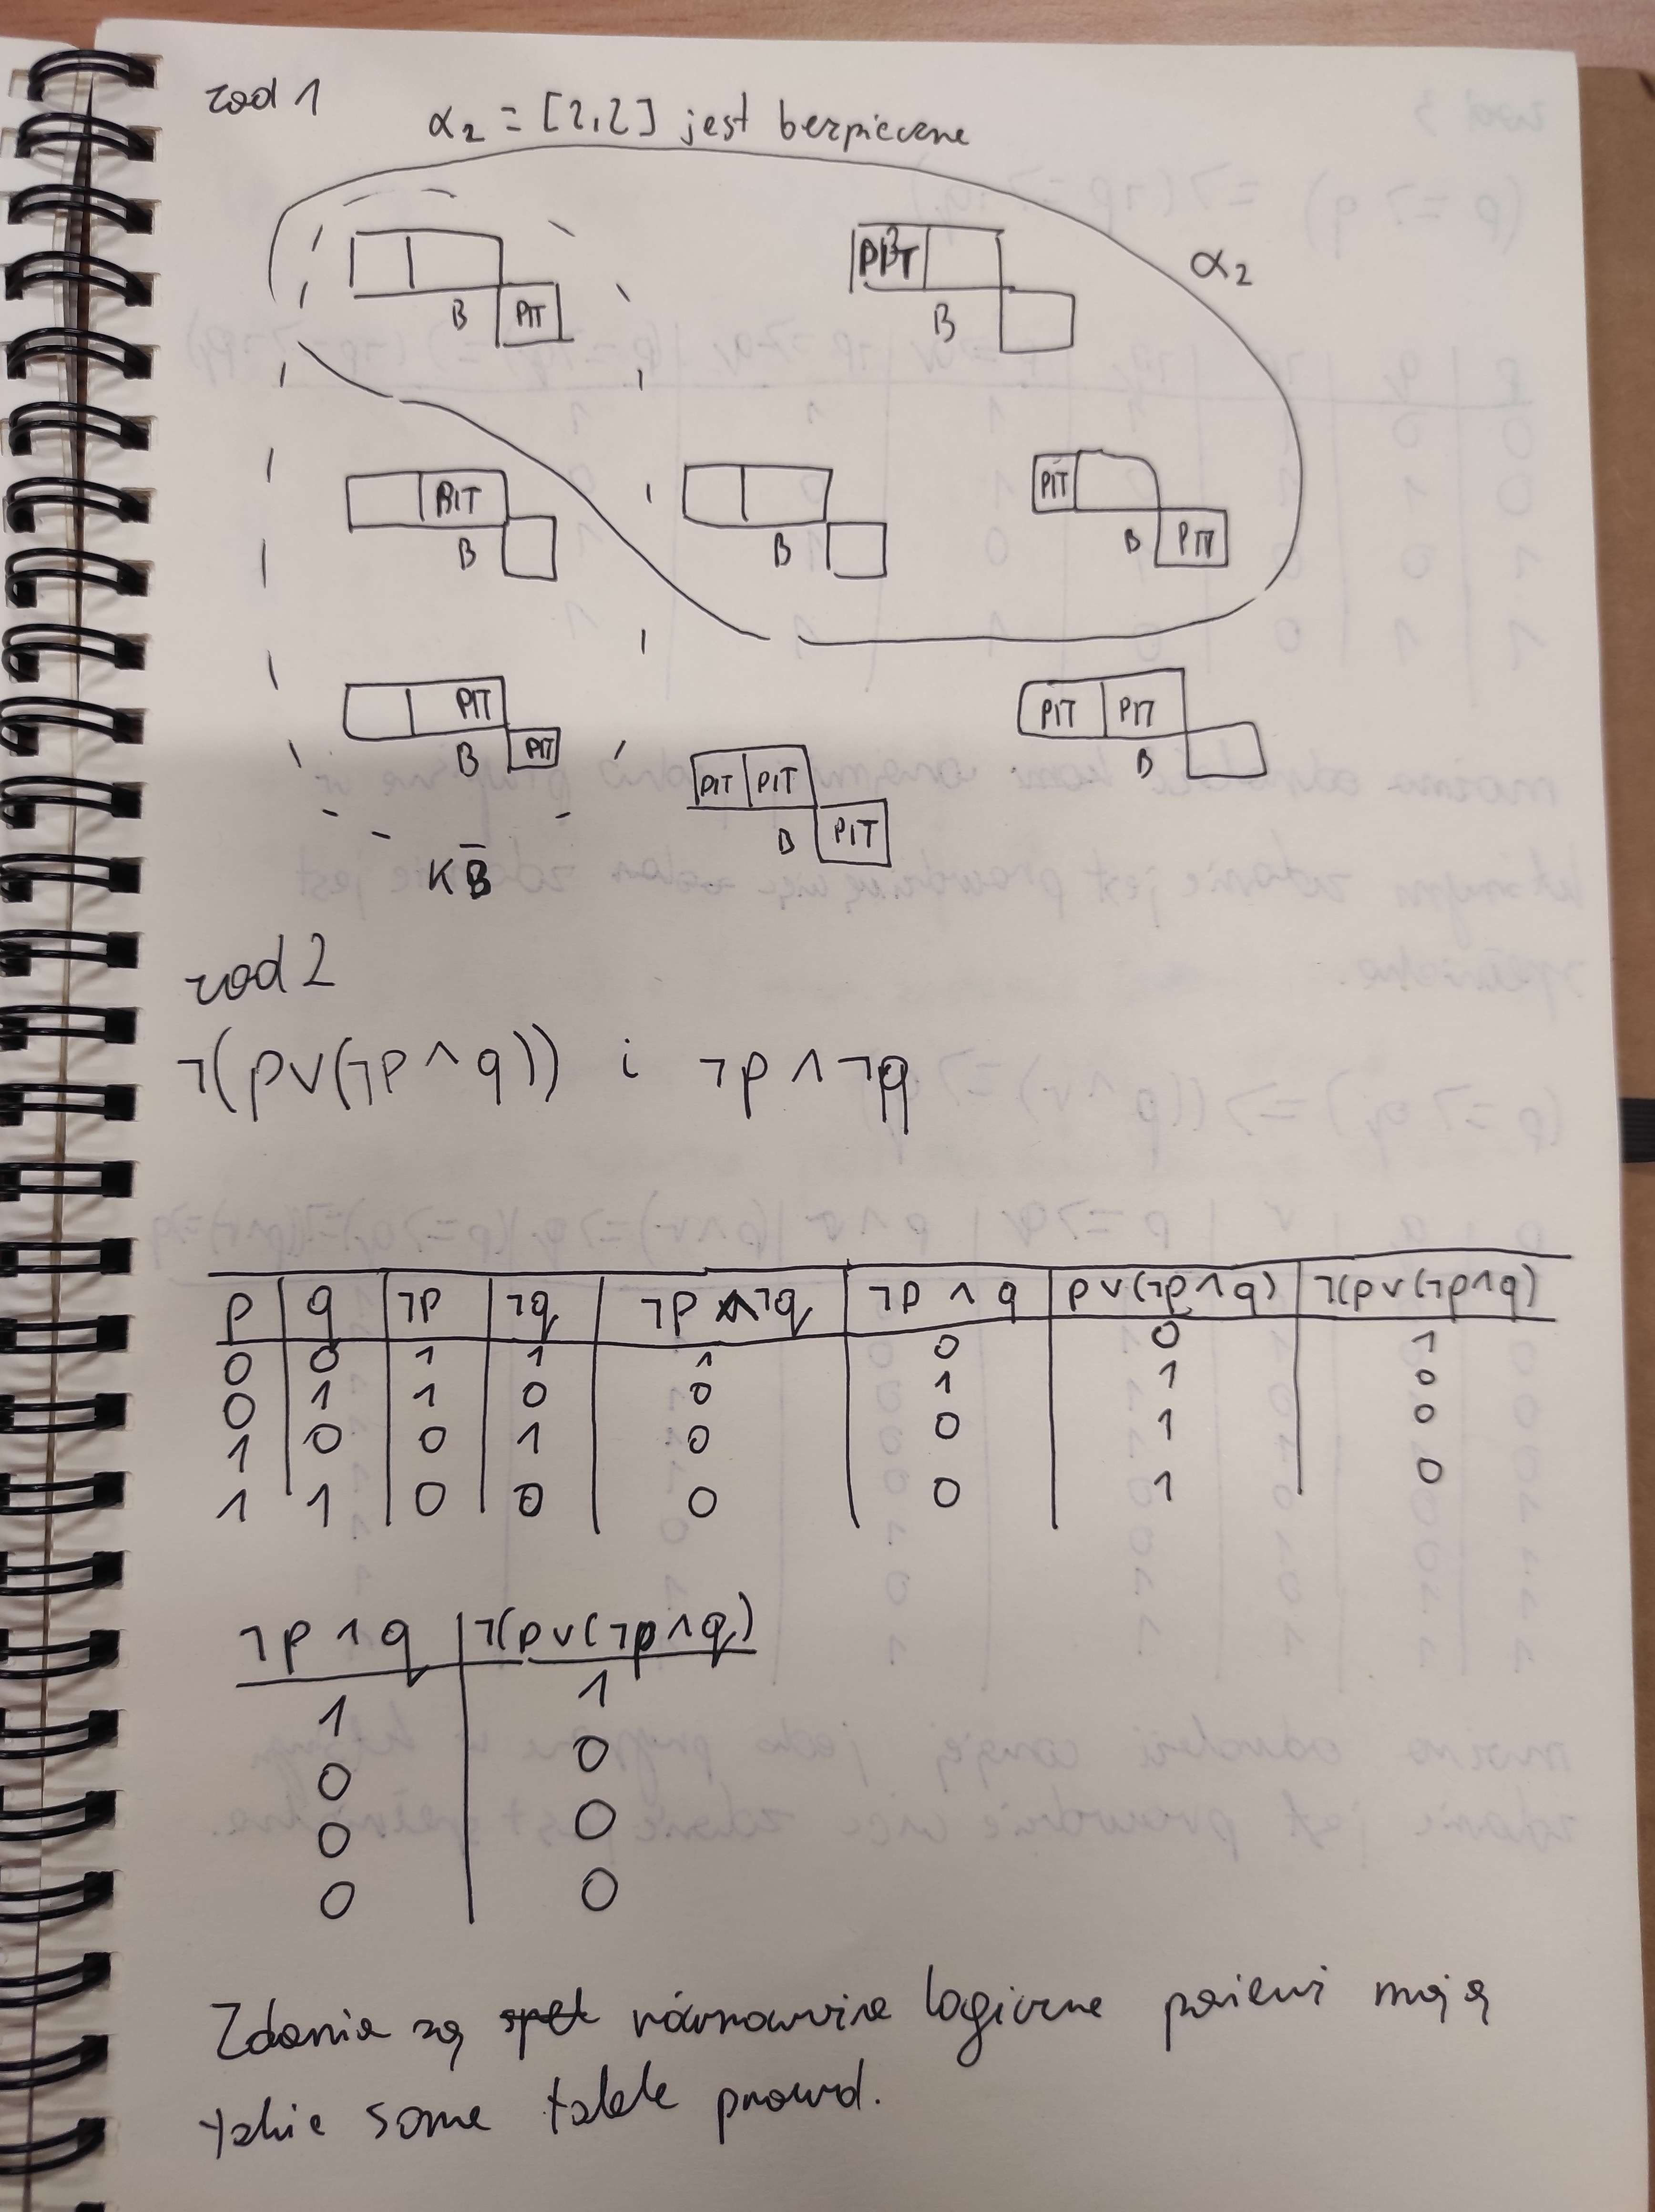 zad 1
α₂ = [2,2] jest bezpieczne
α₂
PIT
B
B
PIT
PIT
B
B
B
PIT
PIT
PIT
PIT
B
PIT
B
PIT
PIT
B
PIT
PIT
B
KB
zad 2
¬(p∨(¬p∧q)) i ¬p∧¬q
p | q | ¬p | ¬q | ¬p ∧ ¬q | ¬p ∧ q | p∨(¬p∧q) | ¬(p∨(¬p∧q)
0 | 0 | 1 | 1 | 1 | 0 | 0 | 1
0 | 1 | 1 | 0 | 0 | 1 | 1 | 0
1 | 0 | 0 | 1 | 0 | 0 | 1 | 0
1 | 1 | 0 | 0 | 0 | 0 | 1 | 0
¬p ∧ q | ¬(p∨(¬p∧q)
1 | 1
0 | 0
0 | 0
0 | 0
Zdania są równoważne logiczne mają
takie same table prawd.